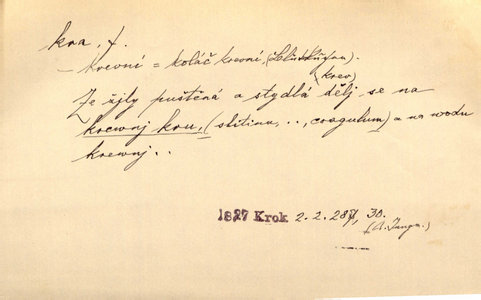 kra, f.
– krevní = koláč krevní,
(krev)
Ze žjly puštěná a stydlá dělj se na
krewnj kru, (slitina, .., coagulum) a na wodu
krewnj ..
1827 Krok 2. 2. 287, 30.
(A. Jungm.)